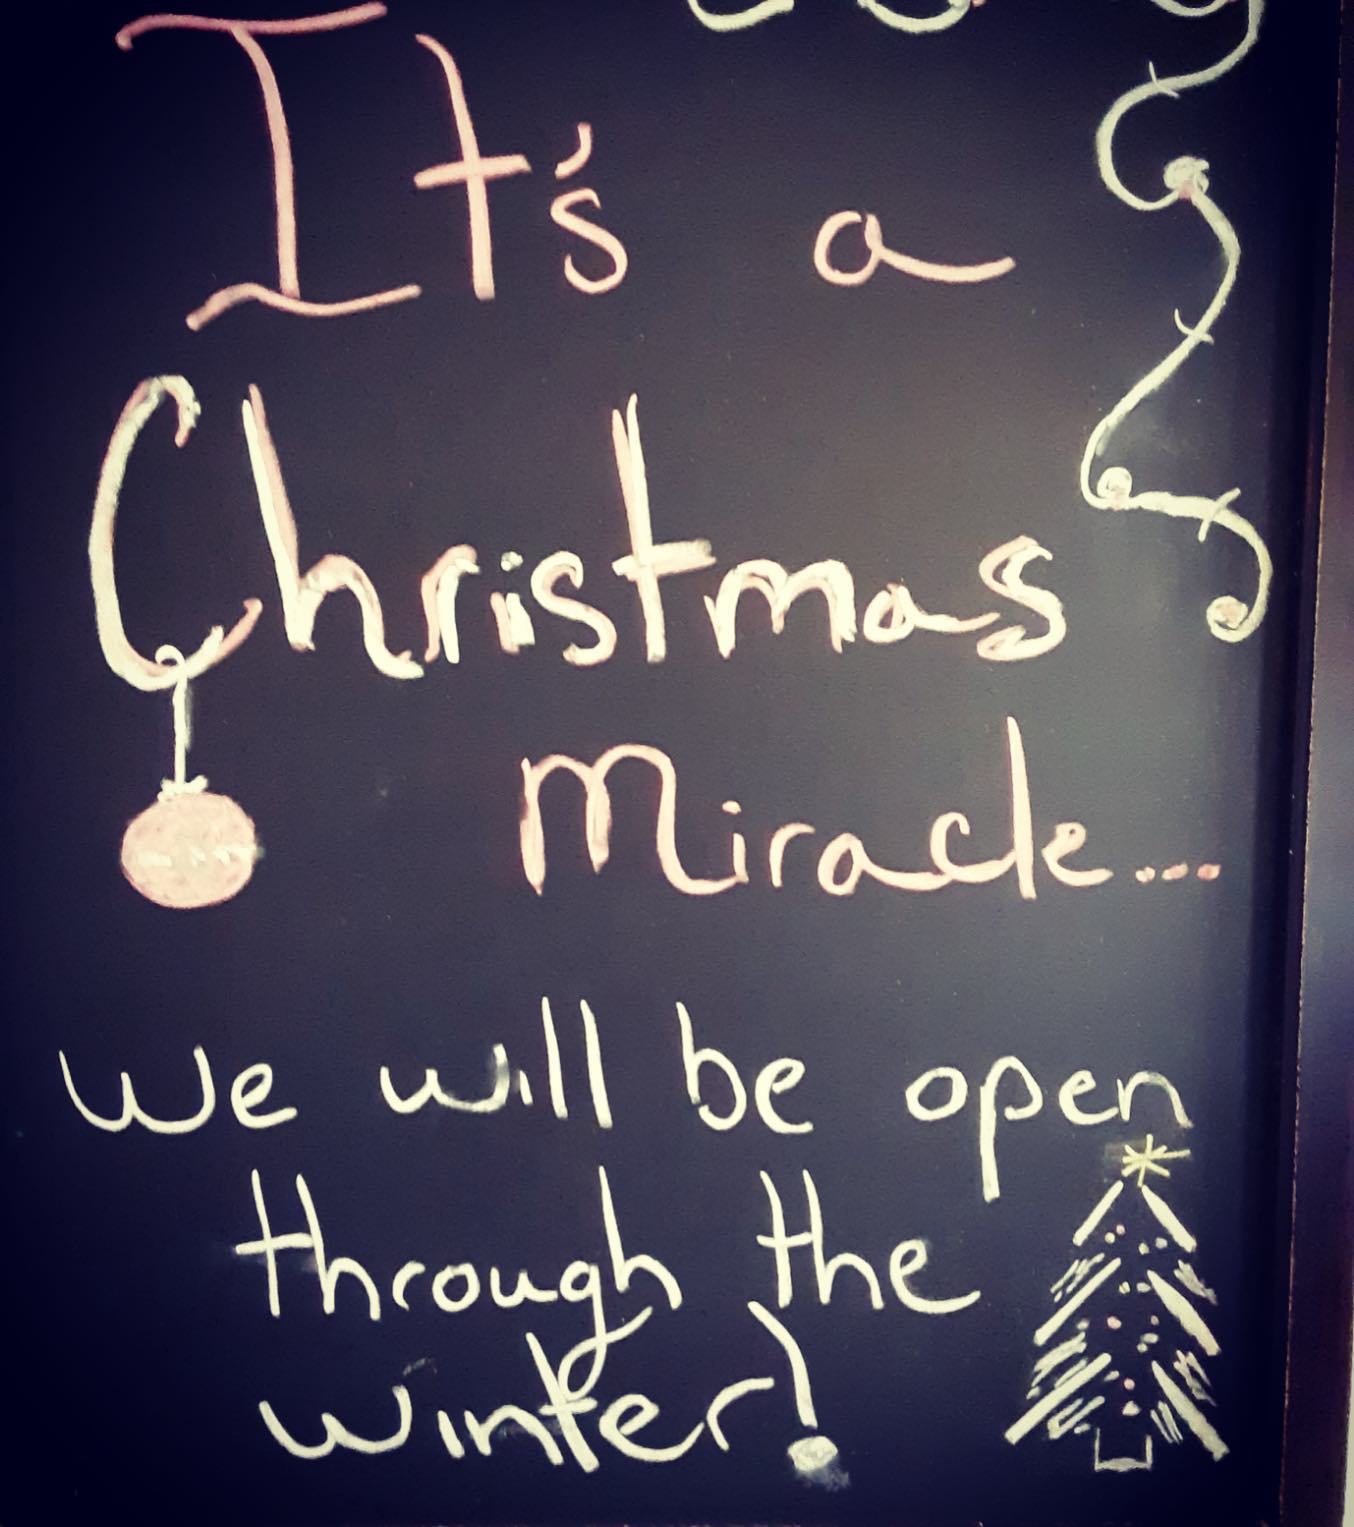 It's a
Christmas
Miracle...
We will be open
through the
winter!